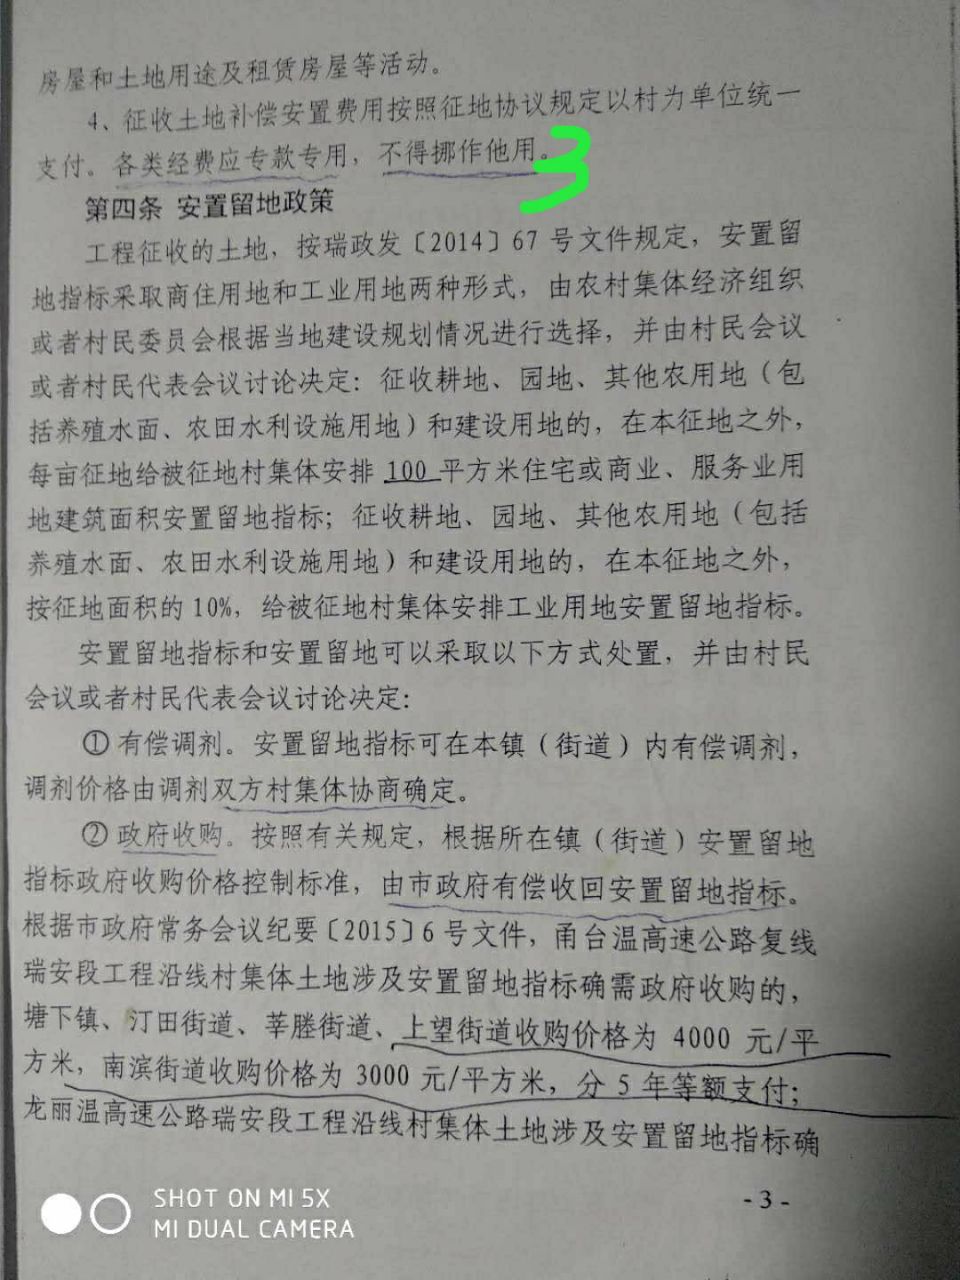 房屋和土地用途及租赁房屋等活动。
4、征收土地补偿安置费用按照征地协议规定以村为单位统一
支付。各类经费应专款专用，不得挪作他用。
3
第四条 安置留地政策
工程征收的土地，按瑞政发〔2014〕67 号文件规定，安置留
地指标采取商住用地和工业用地两种形式，由农村集体经济组织
或者村民委员会根据当地建设规划情况进行选择，并由村民会议
或者村民代表会议讨论决定：征收耕地、园地、其他农用地（包
括养殖水面、农田水利设施用地）和建设用地的，在本征地之外，
每亩征地给被征地村集体安排 100 平方米住宅或商业、服务业用
地建筑面积安置留地指标；征收耕地、园地、其他农用地（包括
养殖水面、农田水利设施用地）和建设用地的，在本征地之外，
按征地面积的 10%，给被征地村集体安排工业用地安置留地指标。
安置留地指标和安置留地可以采取以下方式处置，并由村民
会议或者村民代表会议讨论决定：
①有偿调剂。安置留地指标可在本镇（街道）内有偿调剂，
调剂价格由调剂双方村集体协商确定。
②政府收购。按照有关规定，根据所在镇（街道）安置留地
指标政府收购价格控制标准，由市政府有偿收回安置留地指标。
根据市政府常务会议纪要〔2015〕6 号文件，甬台温高速公路复线
瑞安段工程沿线村集体土地涉及安置留地指标确需政府收购的，
塘下镇、汀田街道、莘塍街道、上望街道收购价格为 4000 元/平
方米，南滨街道收购价格为 3000 元/平方米，分 5 年等额支付；
龙丽温高速公路瑞安段工程沿线村集体土地涉及安置留地指标确
- 3 -
SHOT ON MI 5X
MI DUAL CAMERA